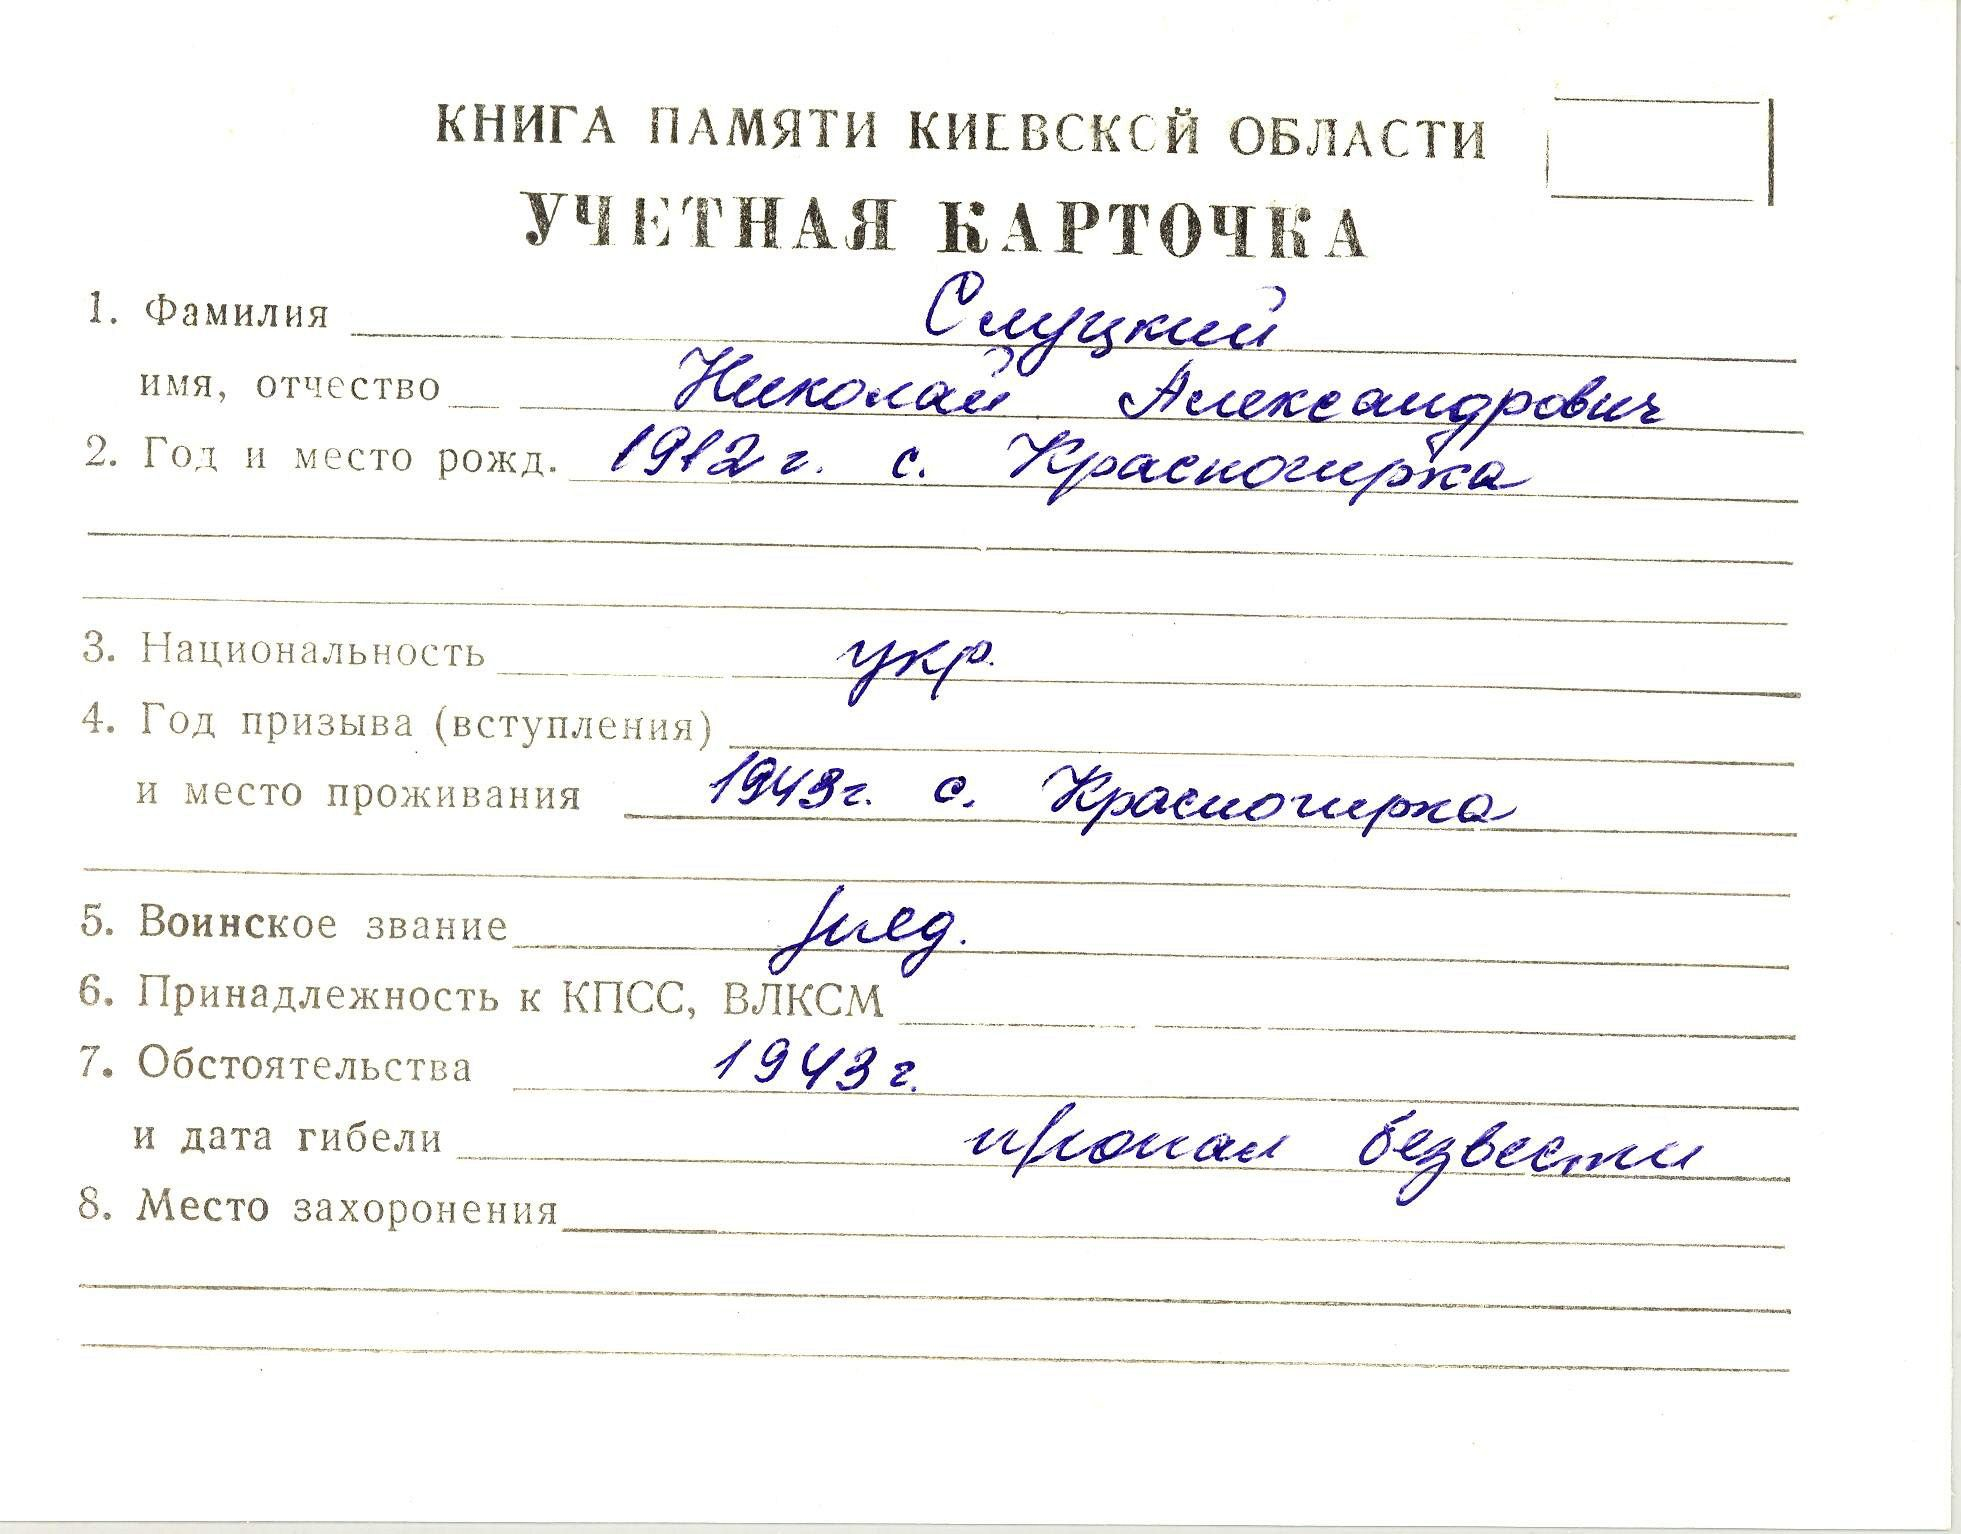 КНИГА ПАМЯТИ КИЕВСКОЙ ОБЛАСТИ
УЧЕТНАЯ КАРТОЧКА
1. Фамилия Слуцкий
имя, отчество Николай Александрович
2. Год и место рожд. 1912 г. с. Красногирка
3. Национальность укр.
4. Год призыва (вступления)
и место проживания 1943г. с. Красногирка
5. Воинское звание
6. Принадлежность к КПСС, ВЛКСМ
7. Обстоятельства 1943 г.
и дата гибели пропал безвести
8. Место захоронения